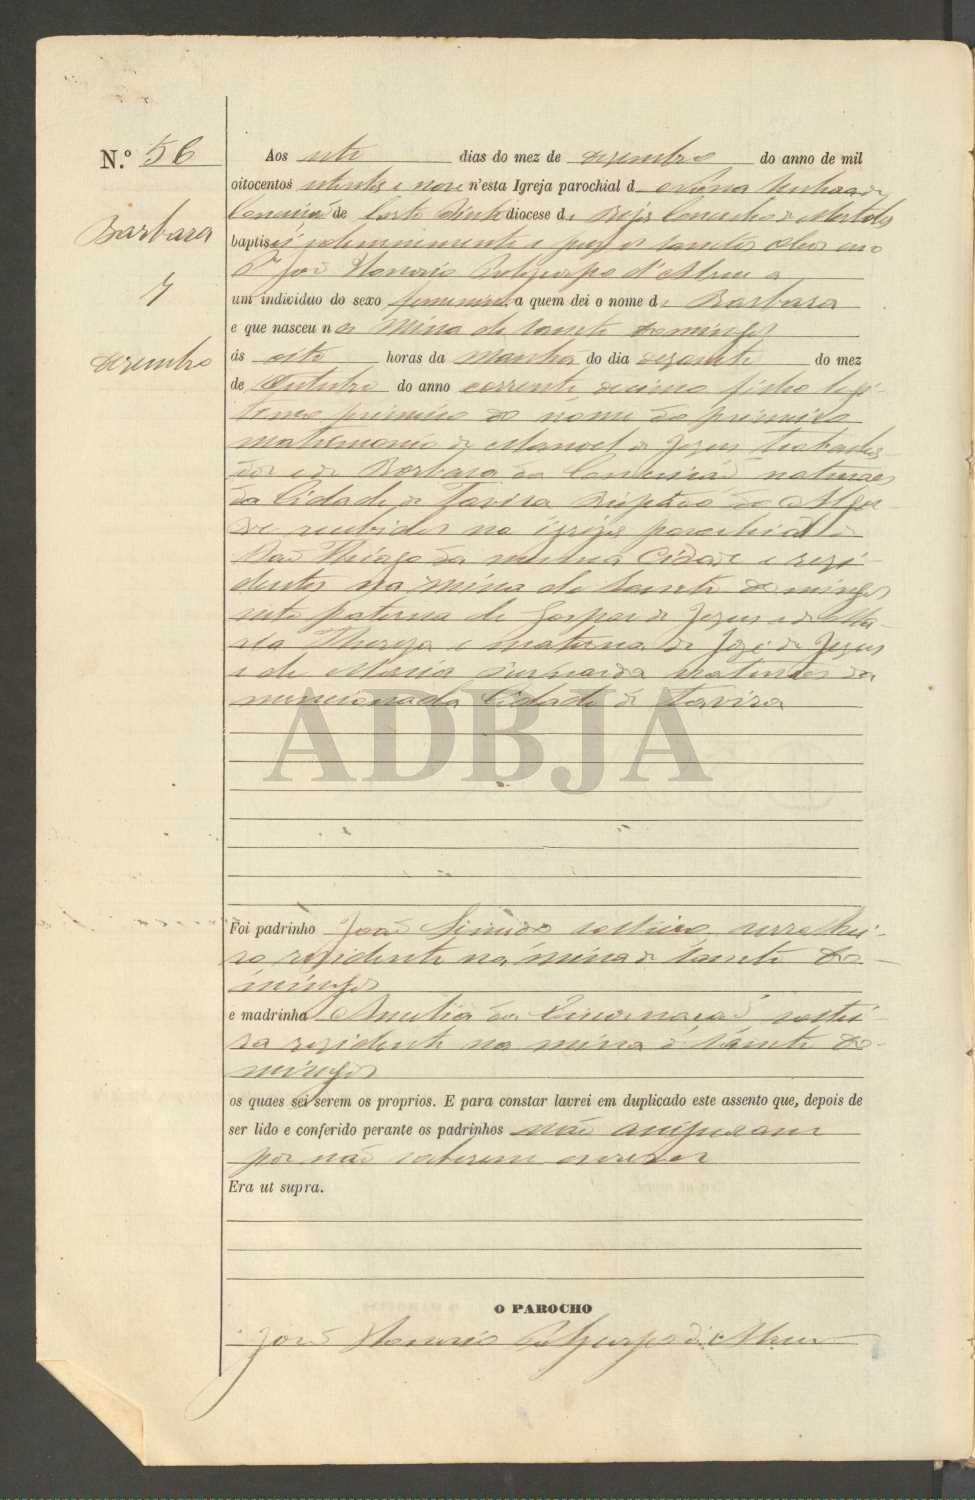 N.º 56
Barbara
7
Dezembro
Aos sete dias do mez de dezembro do anno de mil
oitocentos oitenta e nove n'esta Igreja parochial d Nossa Senhora da
Conceição de Corte Pinto diocese de Beja Concelho de Mertola
baptisei solemnemente e puz os santos oleos eu o
Pe João Honorio d'Abreu a
um individuo do sexo femenino, a quem dei o nome de Barbara
e que nasceu na Mina de Sam Domingos
ás oito horas da manhã do dia dezasete do mez
de Outubro do anno corrente decimo filho legi-
timo primeiro do nome do primeiro
matrimonio de Manoel de Jezus trabalha-
dor e de Barbara da Conceição naturaes
da Cidade de Tavira Bispado do Algar-
ve recebidos na igreja parochial de
São Thiago da mesma Cidade e rezi-
dentes na mina de Sam Domingos
neta paterna de Gaspar de Jezus e de Ma-
ria Thereza e materna de Jozé de Jezus
e de Maria naturaes da
mencionada Cidade de Tavira
ADBJA
Foi padrinho João solteiro serralhei-
ro rezidente na mina de Sam Do-
mingos
e madrinha Amelia da Encarnação soltei-
ra rezidente na mina de Sam Do-
mingos
os quaes sei serem os proprios. E para constar lavrei em duplicado este assento que, depois de
ser lido e conferido perante os padrinhos não assignaram
por não saberem escrever
Era ut supra.
O PAROCHO
João Honorio d'Abreu